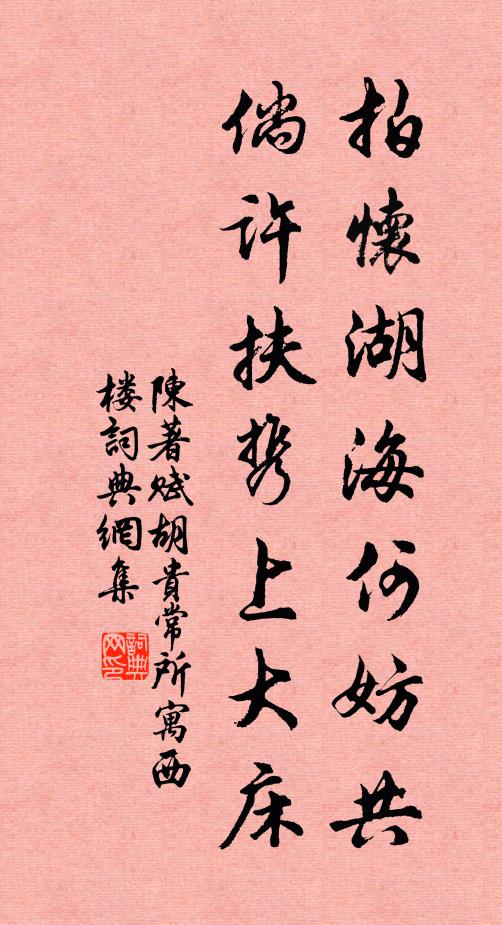 拍懷湖海何妨共
倘許扶携上大床
陳著賦胡貴常所寓西
楼詞典網集
詞典
网印